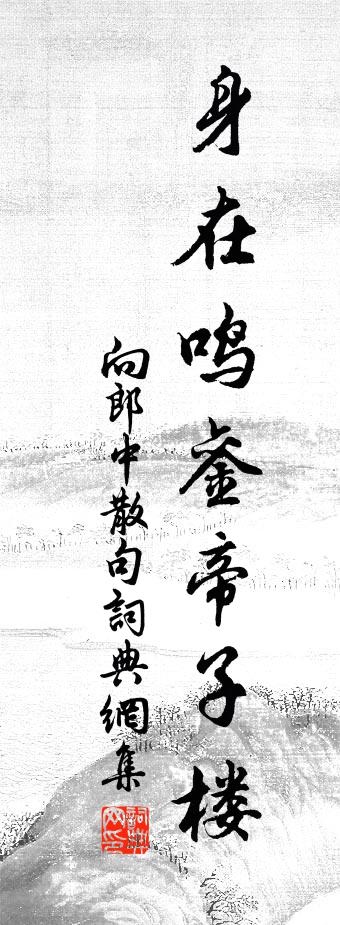 身在鸣銮帝子楼
向郎中散句詞典網集
詞典网印